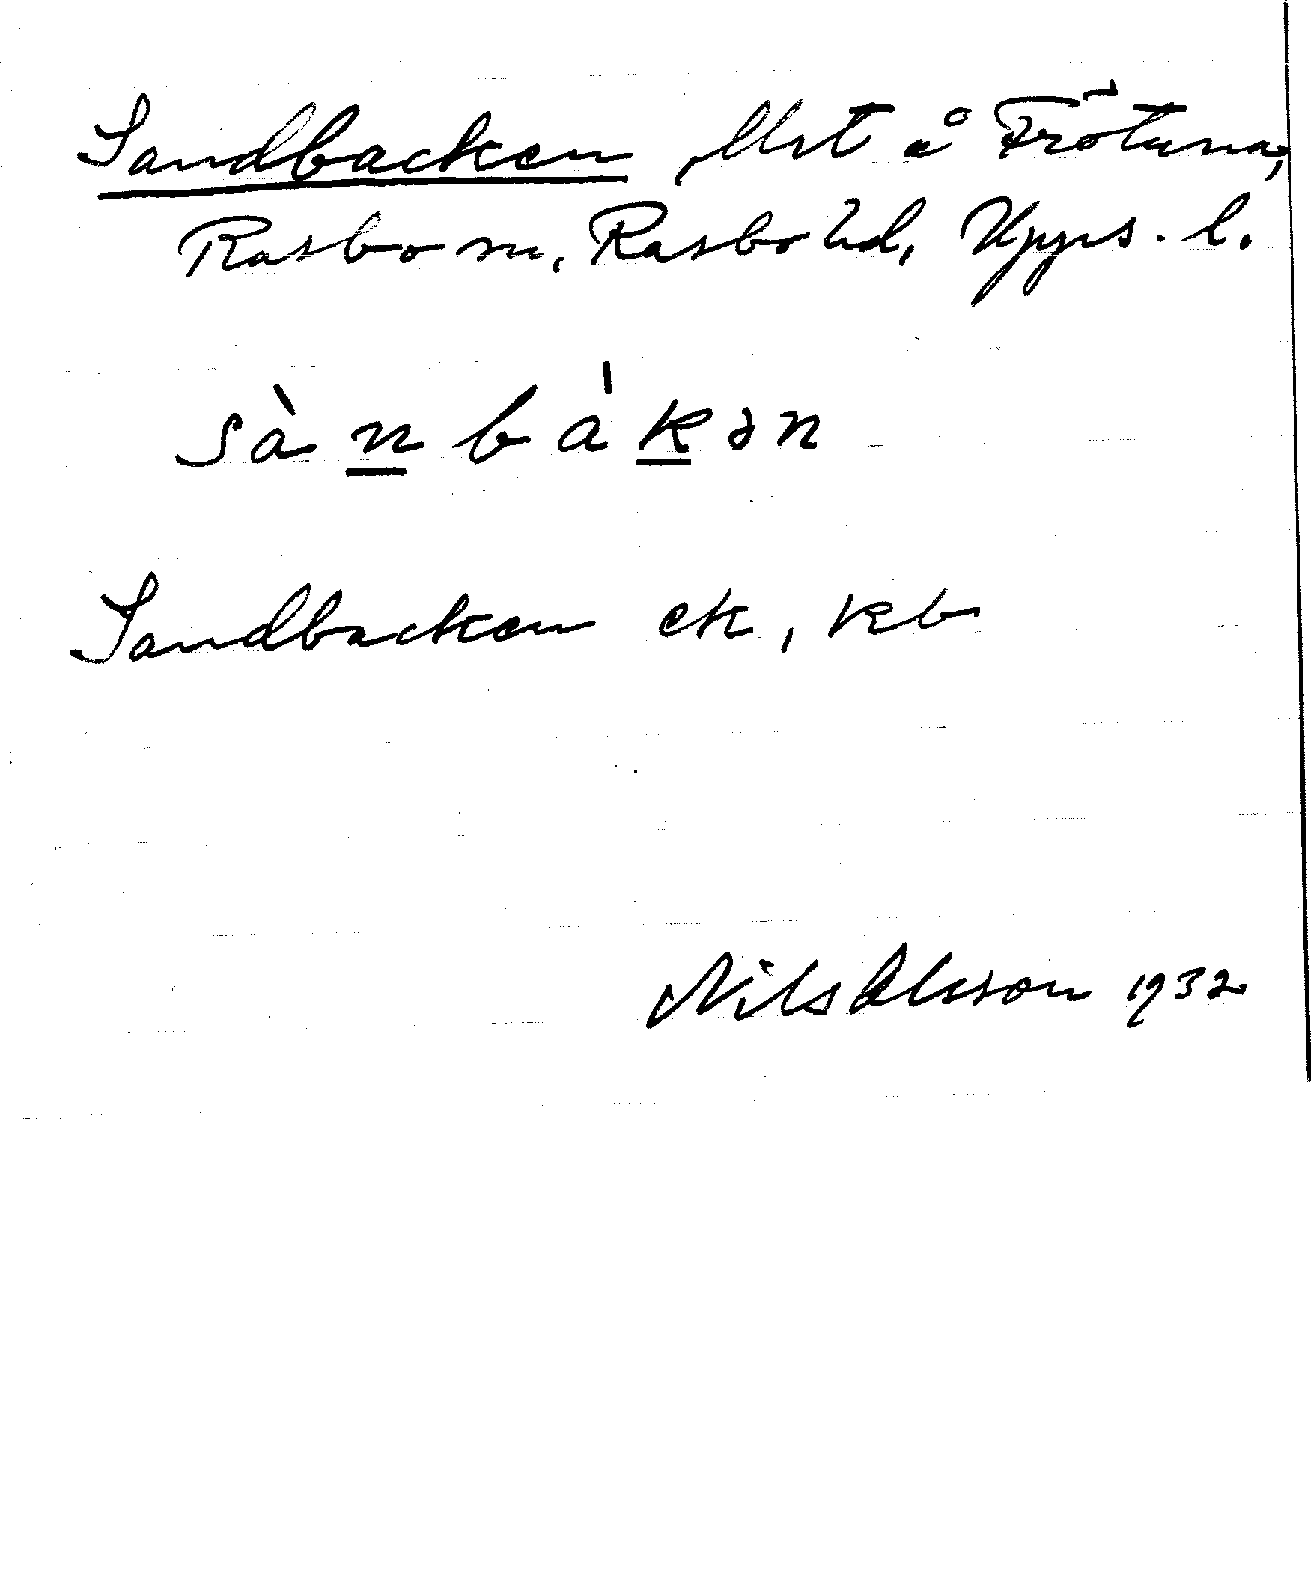 Sandbacken, Ust å Frötuna,
Rasbo sn, Rasbo hd, Upps. l.
sànbákən
Sandbacken ek, kb
Nils Olsson 1932